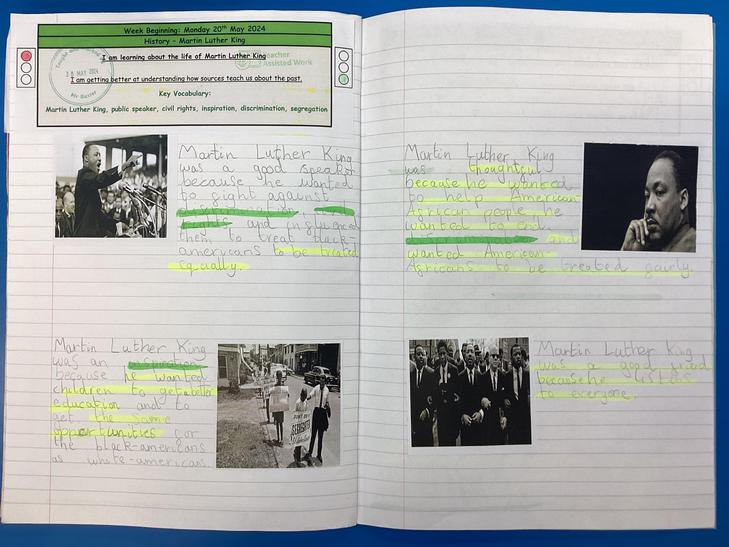 Week Beginning: Monday 20th May 2024
History - Martin Luther King
I am learning about the life of Martin Luther King
Teacher
Assisted Work
I am getting better at understanding how sources teach us about the past.
Key Vocabulary:
Martin Luther King, public speaker, civil rights, inspiration, discrimination, segregation
MAY 2024
Martin Luther King
was a good speaker
because he wanted
to fight against
and influenced
them to treat black
americans to be treated
equally.
Martin Luther King
was an inspiration
because he wanted
children to get a
education and to
get the same
opportunities for
the black-americans
as white-americans
Martin Luther King
was thoughtful
because he wanted
to help American
African people he
wanted to end
and
wanted American
Africans to be treated fairly.
Martin Luther King
was a good
because he
to everyone.